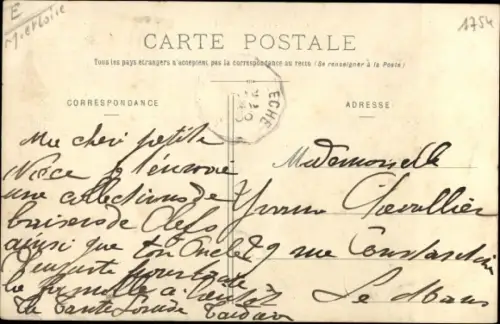 E
M.et Loire
1754
CARTE POSTALE
Tous les pays étrangers n'acceptent pas la correspondance au verso (Se renseigner à la Poste)
CORRESPONDANCE
ADRESSE
ECHE
Ma chère petite
Nièce je t'envoie
une collections de
baisers de Clefs
ainsi que ton Oncle
Auguste pour toute
la famille à bientôt
Ta Tante Louise
Mademoiselle
Yvonne Chevallier
9 rue Constantin
Le Mans